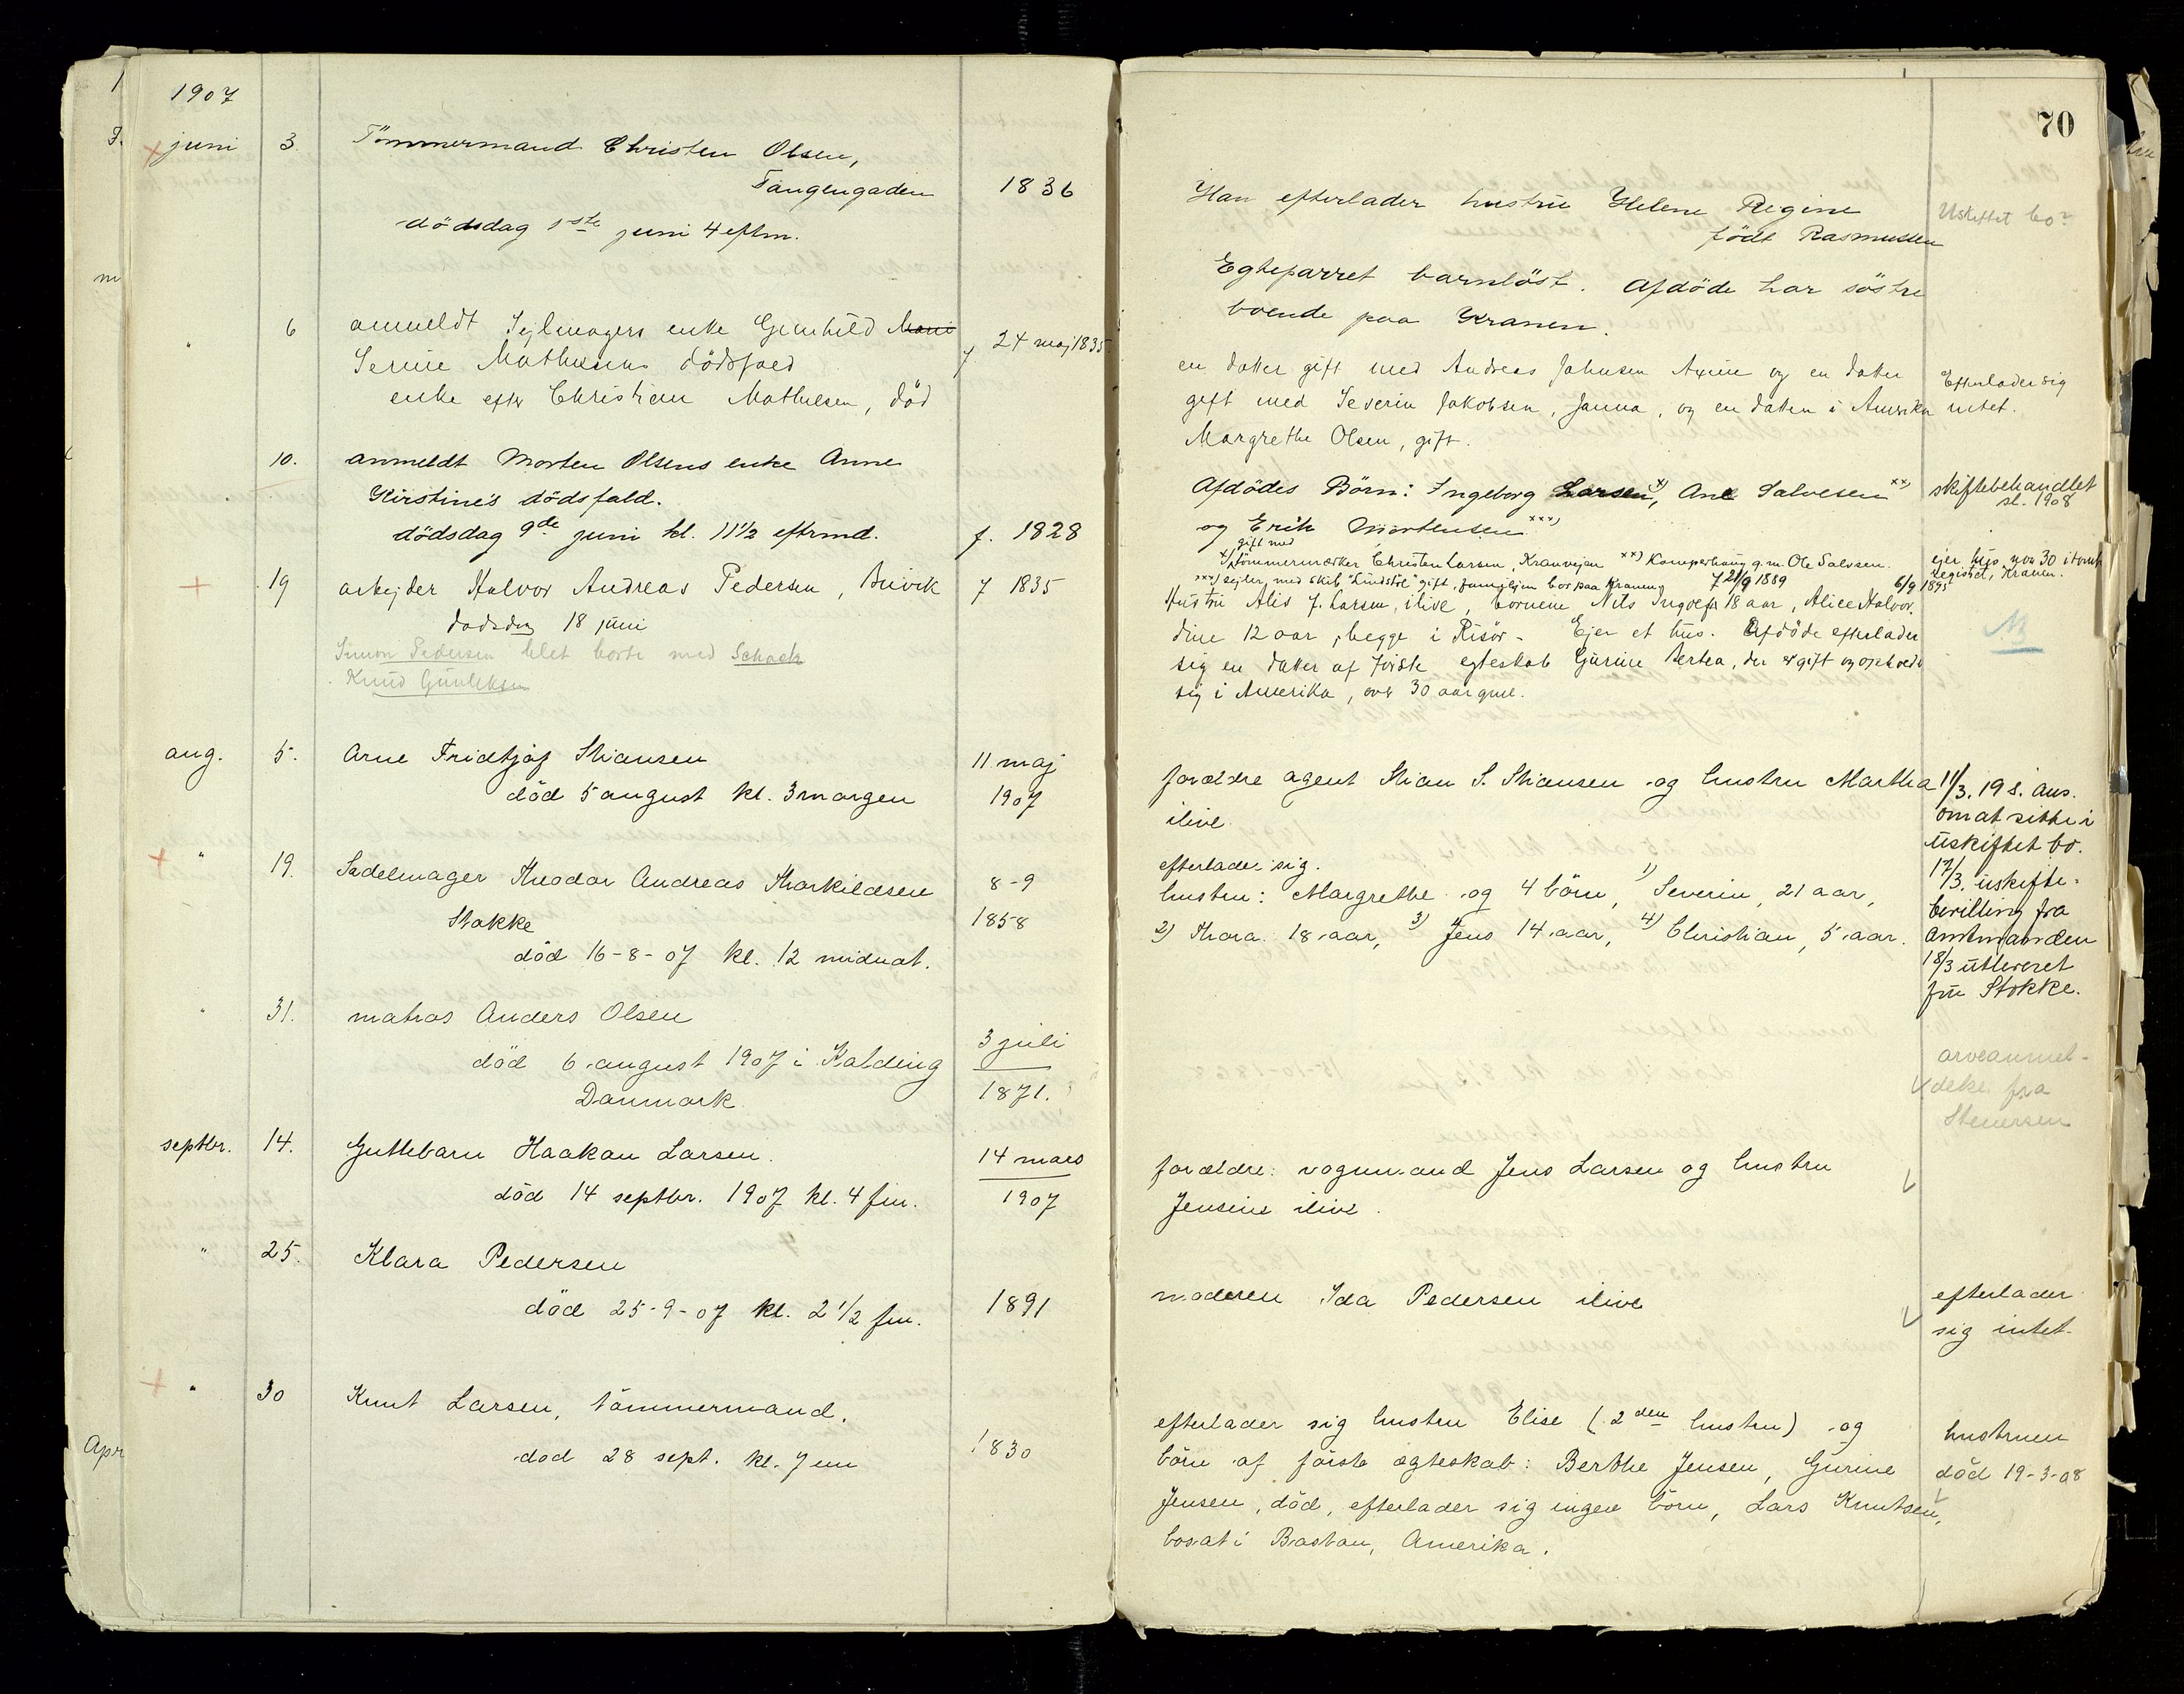 1907
70
juni 3. Tömmermand Christen Olsen,
Tangengaden 1836
dödsdag 1ste juni 4 eftm.
Han efterlader hustru Helene Regine
födt Rasmussen
Uskiftet bo?
Egteparret barnlöst. Afdöde har söstre
boende paa Kranen.
" 6 anmeldt Sejlmagers enke Gunhild
Serine Mathisens dödsfald
f 24 maj 1835
enke efter Christian Mathisen, död
en datter gift med Andreas Johnsen Axine og en datter
gift med Severin Jakobsen, Janna, og en datter i Amerika
Margrethe Olsen, gift.
Efterlader sig
intet.
10. anmeldt Morten Olsens enke Anne
Kirstine's dödsfald.
dödsdag 9de juni kl. 11 1/2 eftrmd. f. 1828
Afdödes Börn: Ingeborg Larsen, x) Ane Salvesen xx)
og Erik Mortensen xxx)
gift med
x) tömmermærker Christen Larsen, Kranvejen xx) Komperhaug g.m. Ole Salvesen.
xxx) sejler med skib "Lindstöl" gift, familjen bor paa Kranen
skiftebehandlet
sl. 1908
ejer hus nov 30 i
registret, Kranen.
19 arbejder Halvor Andreas Pedersen, Buvik f 1835
dödsdag 18 juni
Simon Pedersen blet borte med Schack
Knud Gunleksen
f 21/9 1889
6/9 1895
Hustru Alis f. Larsen, ilive, börnene Nils Ingolf 18 aar, Alice Halvor.
dine 12 aar, begge i Risör - Ejer et hus. Afdöde efterlader
sig en datter af förste egteskab Gurine Bertea, der er gift og opholder
sig i Amerika, over 30 aar gml.
aug. 5. Arne Fridtjof Stiansen 11 maj
död 5 august kl. 3 morgen 1907
forældre agent Stian S. Stiansen og hustru Martha
ilive
" 19. Sadelmager Theodor Andreas Thorkildsen 8-9
Stokke 1858
död 16-8-07 kl. 12 midnat.
efterlader sig.
hustru: Margrethe og 4 börn, 1) Severin, 21 aar,
2) Thora 18 aar, 3) Jens 14 aar, 4) Christian, 5 aar.
11/3. 198. ans.
om at sitte i
uskiftet bo.
17/3. uskifte-
bevilling fra
Amtmanden
18/3 utleveret
fru Stokke.
" 31. matros Anders Olsen 3 juli
död 6 august 1907 i Kolding
Danmark 1871.
arveanmel-
delse fra
Stenersen
septbr. 14. Guttebarn Haakon Larsen. 14 mars
död 14 septbr. 1907 kl. 4 fm. 1907
forældre: vognmand Jens Larsen og hustru
Jensine ilive.
" 25. Klara Pedersen
död 25-9-07 kl. 2 1/2 fm. 1891
moderen Ida Pedersen ilive
efterlader
sig intet.
" 30 Knut Larsen, tömmermand.
död 28 sept. kl. 7 em 1830
efterlader sig hustru Elise (2den hustru) og
börn af förste ægteskab: Berthe Jensen, Gurine
Jensen, död, efterlader sig ingen börn, Lars Knutsen,
bosat i Boston, Amerika.
hustruen
död 19-3-08
Apr